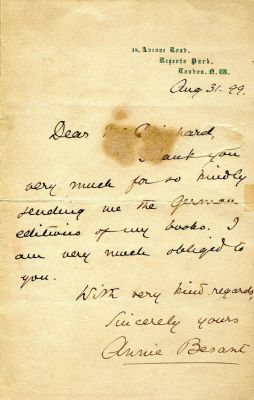 19, Avenue Road,
Regents Park,
London. N.W.
Aug 31. 99.
Dear
Thank you
very much for so kindly
sending me the German
editions of my books. I
am very much obliged to
you.
With very kind regards,
Sincerely yours
Annie Besant